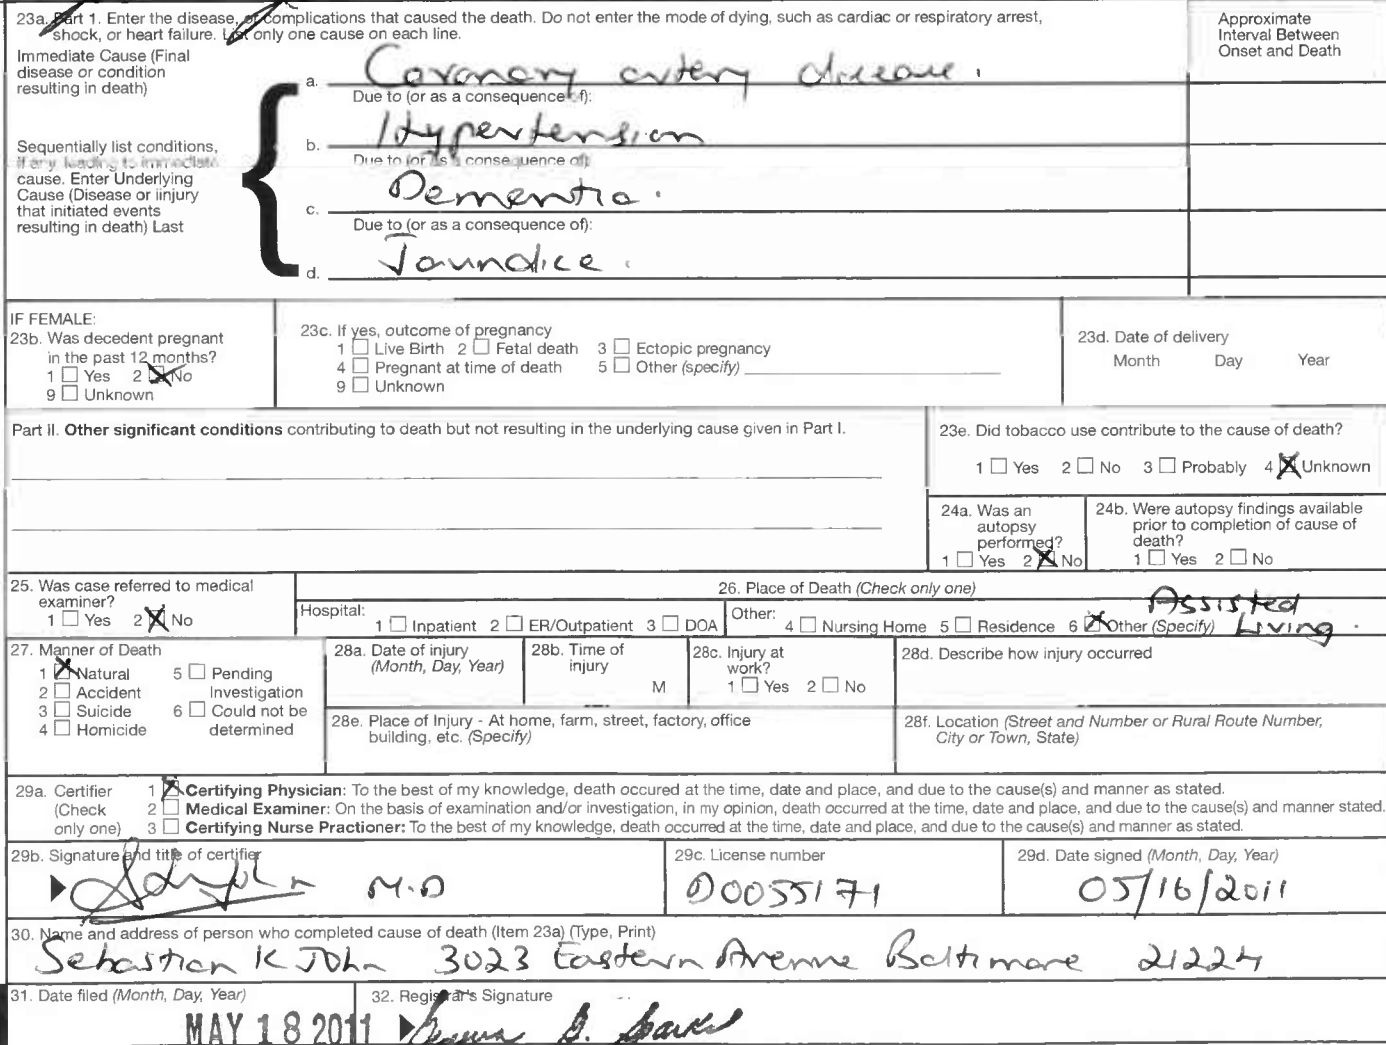 23a. Part 1. Enter the disease, or complications that caused the death. Do not enter the mode of dying, such as cardiac or respiratory arrest,
shock, or heart failure. List only one cause on each line.
Approximate
Interval Between
Onset and Death
Immediate Cause (Final
disease or condition
resulting in death)
a. Coronary artery disease.
Due to (or as a consequence of):
b. Hypertension
Sequentially list conditions,
if any leading to immediate
cause. Enter Underlying
Cause (Disease or iinjury
that initiated events
resulting in death) Last
Due to (or as a consequence of)
c. Dementia.
Due to (or as a consequence of):
d. Jaundice.
IF FEMALE:
23b. Was decedent pregnant
in the past 12 months?
1 ☐ Yes 2 ☒ No
9 ☐ Unknown
23c. If yes, outcome of pregnancy
1 ☐ Live Birth 2 ☐ Fetal death 3 ☐ Ectopic pregnancy
4 ☐ Pregnant at time of death 5 ☐ Other (specify)
9 ☐ Unknown
23d. Date of delivery
Month Day Year
Part II. Other significant conditions contributing to death but not resulting in the underlying cause given in Part I.
23e. Did tobacco use contribute to the cause of death?
1 ☐ Yes 2 ☐ No 3 ☐ Probably 4 ☒ Unknown
24a. Was an
autopsy
performed?
1 ☐ Yes 2 ☒ No
24b. Were autopsy findings available
prior to completion of cause of
death?
1 ☐ Yes 2 ☐ No
25. Was case referred to medical
examiner?
1 ☐ Yes 2 ☒ No
26. Place of Death (Check only one)
Hospital: 1 ☐ Inpatient 2 ☐ ER/Outpatient 3 ☐ DOA
Other: 4 ☐ Nursing Home 5 ☐ Residence 6 ☒ Other (Specify) Assisted
Living.
27. Manner of Death
1 ☒ Natural 5 ☐ Pending
2 ☐ Accident Investigation
3 ☐ Suicide 6 ☐ Could not be
4 ☐ Homicide determined
28a. Date of injury
(Month, Day, Year)
28b. Time of
injury
M
28c. Injury at
work?
1 ☐ Yes 2 ☐ No
28d. Describe how injury occurred
28e. Place of Injury - At home, farm, street, factory, office
building, etc. (Specify)
28f. Location (Street and Number or Rural Route Number,
City or Town, State)
29a. Certifier
(Check
only one)
1 ☒ Certifying Physician: To the best of my knowledge, death occured at the time, date and place, and due to the cause(s) and manner as stated.
2 ☐ Medical Examiner: On the basis of examination and/or investigation, in my opinion, death occurred at the time, date and place, and due to the cause(s) and manner stated.
3 ☐ Certifying Nurse Practioner: To the best of my knowledge, death occurred at the time, date and place, and due to the cause(s) and manner as stated.
29b. Signature and title of certifier
M.D
29c. License number
D0055171
29d. Date signed (Month, Day, Year)
05/16/2011
30. Name and address of person who completed cause of death (Item 23a) (Type, Print)
Sebastian K John 3023 Eastern Avenue Baltimore 21224
31. Date filed (Month, Day, Year)
MAY 18 2011
32. Registrar's Signature